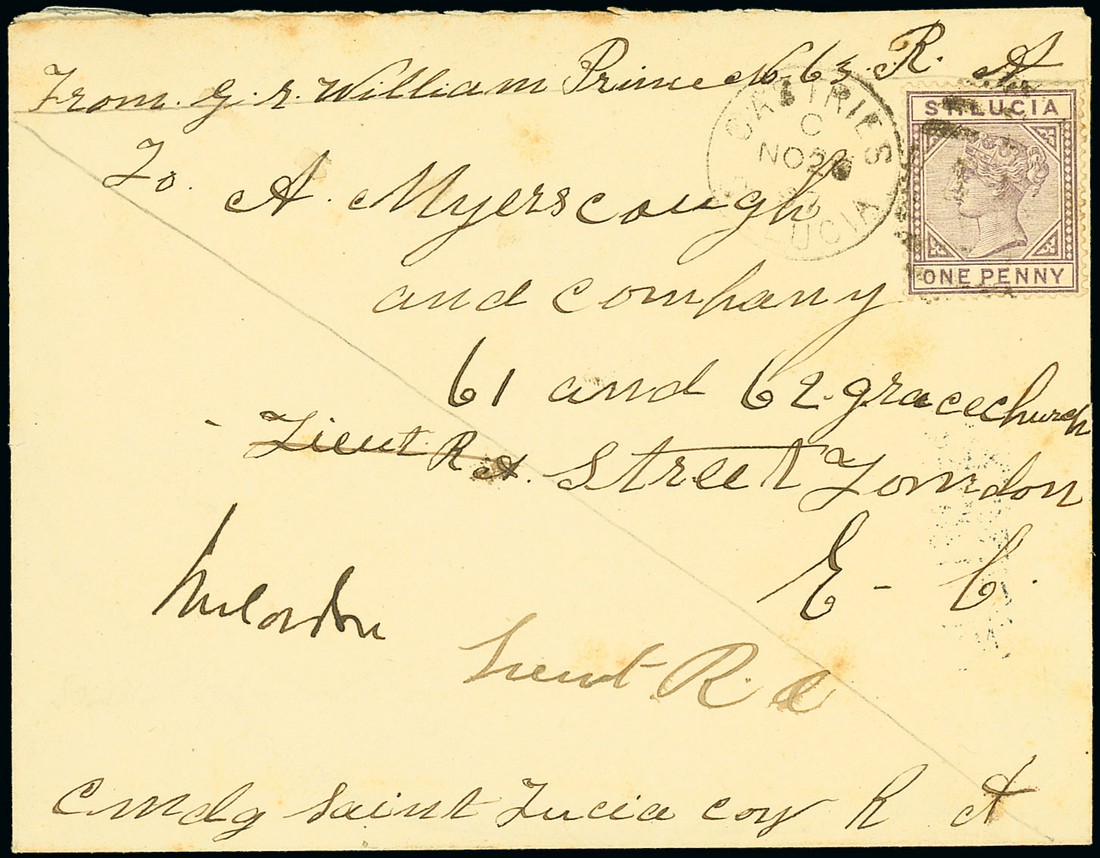 From. G. r. William Prime No 63. R. A
To.
A. Myerscough
and company
61 and 62. gracechurch
Lieut. R A. Street London
E - C.
Lieut R. A
Cmdg Saint Lucia coy R A
CASTRIES
C
NO 26
ST LUCIA
ST LUCIA
ONE PENNY